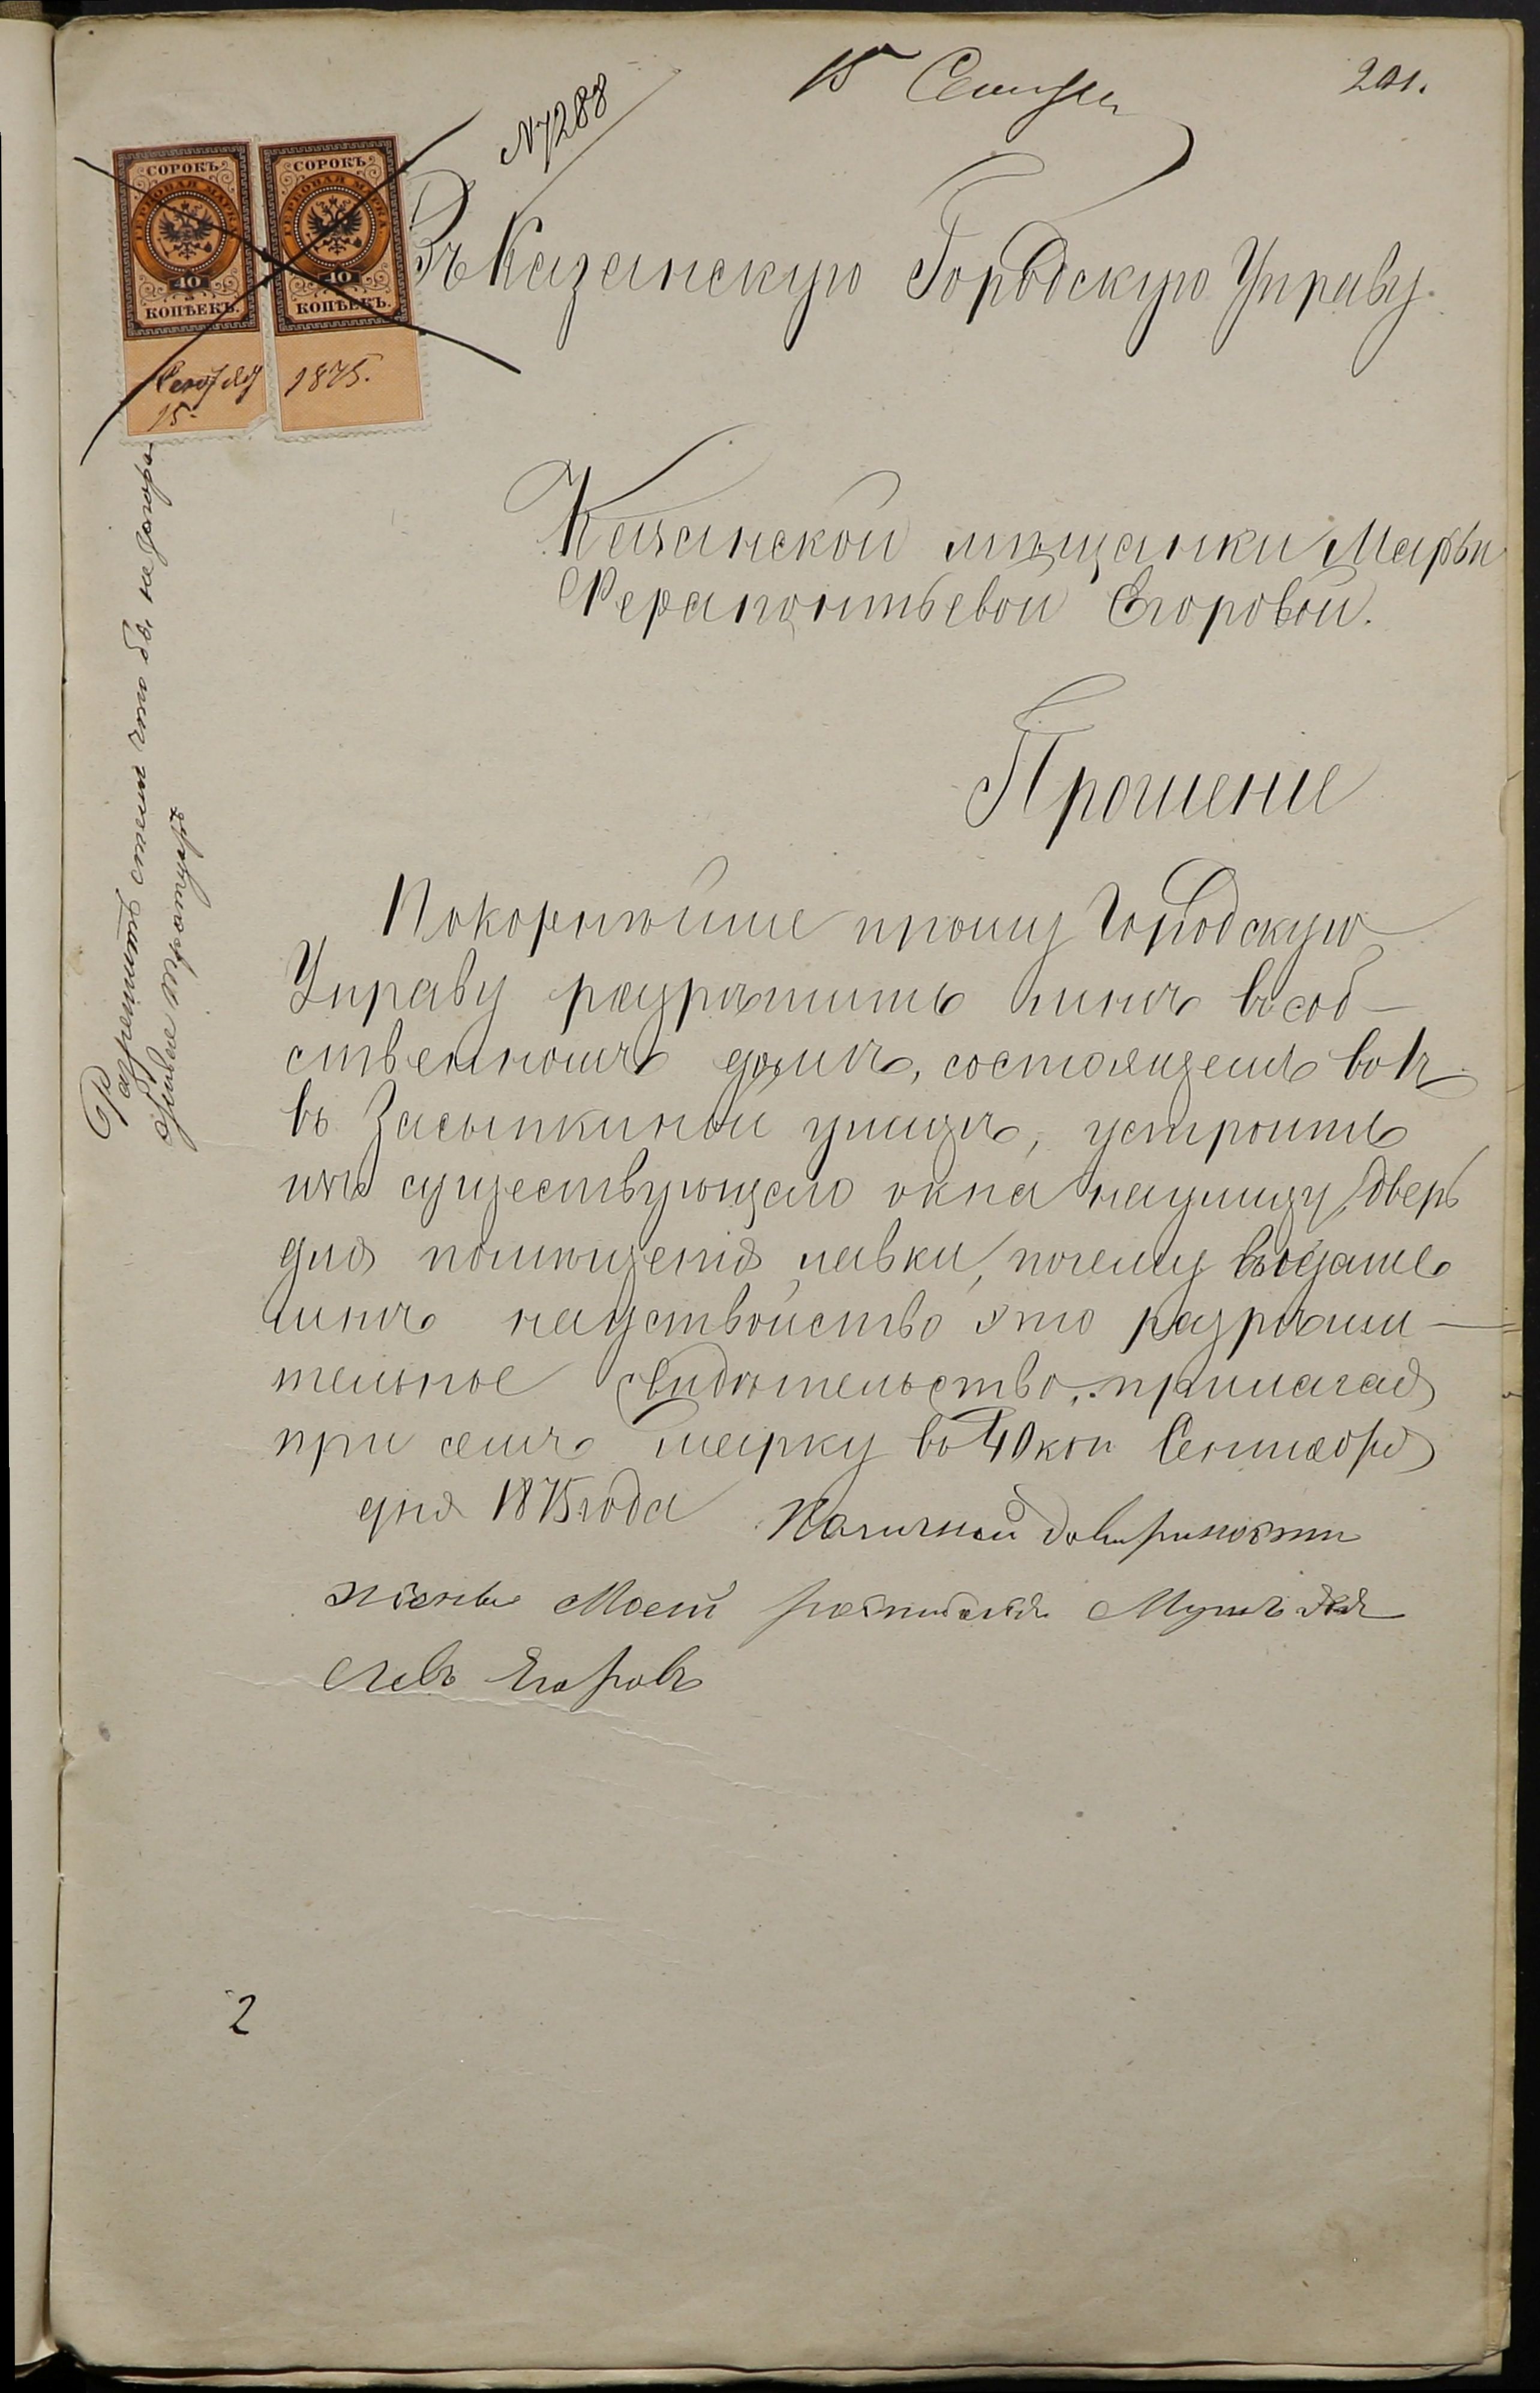 15 Сентября
201.
№ 7288
СОРОКЪ
ГЕРБОВАЯ МАРКА
40
КОПѢЕКЪ.
СОРОКЪ
ГЕРБОВАЯ МАРКА
40
КОПѢЕКЪ.
Сентября
15.
1875.
Въ Казанскую Городскую Управу.
Казанской мѣщанки Марьи
Ферапонтьевой Егоровой.
Прошеніе
Покорнѣйше прошу Городскую
Управу разрѣшить мнѣ въ соб-
ственномъ домѣ, состоящемъ во 2й
въ Засыпкиной улицѣ, устроить
изъ существующаго окна на улицу, дверь
для помѣщенія лавки, почему выдать
мнѣ на устройство это разрѣши-
тельное свидѣтельство, прилагая
при семъ марку въ 40 коп Сентября
дня 1875 года
По личной довѣриности
жены моей росписался Мужъ ея
Левъ Егоровъ
Разрѣшить съ тѣмъ что бъ на
2